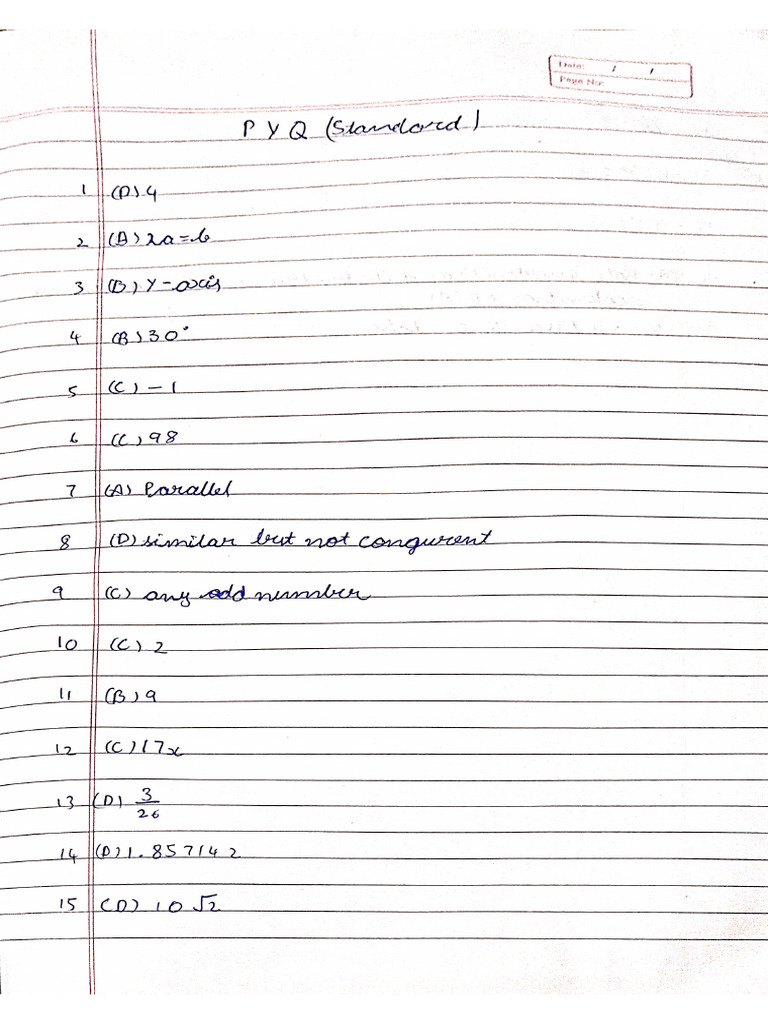 Date: / /
Page No:
P Y Q (Standard)
1 (D) 4
2 (A) 2a=b
3 (B) Y-axis
4 (B) 30°
5 (C) -1
6 (C) 98
7 (A) Parallel
8 (D) similar but not congurent
9 (C) any odd number
10 (C) 2
11 (B) 9
12 (C) 17x
13 (D) 3/26
14 (D) 1.857142
15 (D) 10√2